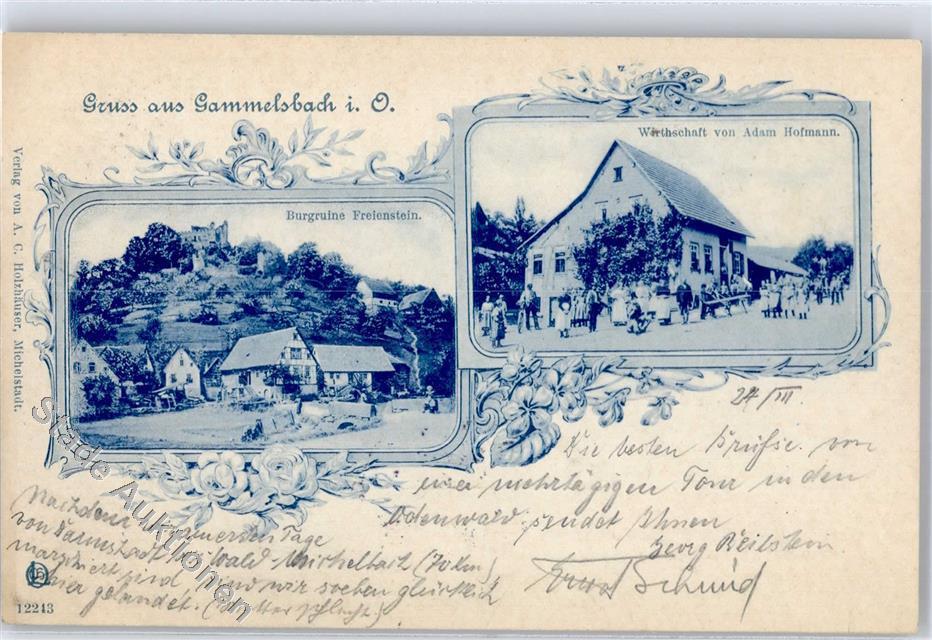 Gruss aus Gammelsbach i. O.
Wirthschaft von Adam Hofmann.
Burgruine Freienstein.
Verlag von A. C. Holzhäuser, Michelstadt.
24/III
Die besten Grüsse von
einer mehrtägigen Tour in den
Odenwald sendet Ihnen
Georg Beilstein
Ernst Schmid
Nachdem am ersten Tage
von Darmstadt Michelbach (70 km)
marschiert sind wir soeben glücklich
hier gelandet.
12243
Stade Auktionen